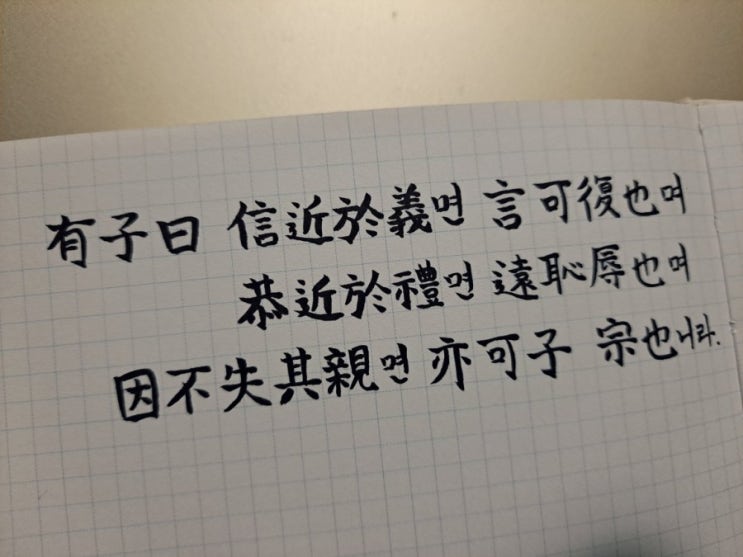 有子曰 信近於義면 言可復也며
恭近於禮면 遠恥辱也며
因不失其親면 亦可子 宗也니라.